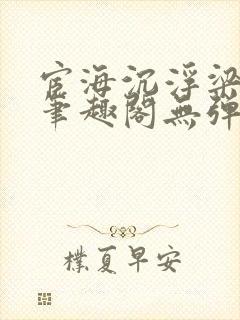 宦海沉浮梁
笔趣阁無弹
樸夏早安